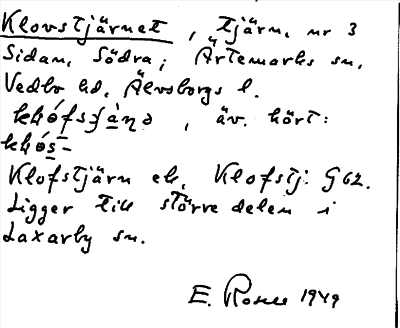 Klovstjärnet, tjärn, nr 3
Sidan, Södra; Ärtemarks sn,
Vedbo hd, Älvsborgs l.
, äv. hört:
Klofstjärn ek, Klofstj. G 62.
Ligger till större delen i
Laxarby sn.
E. 1949